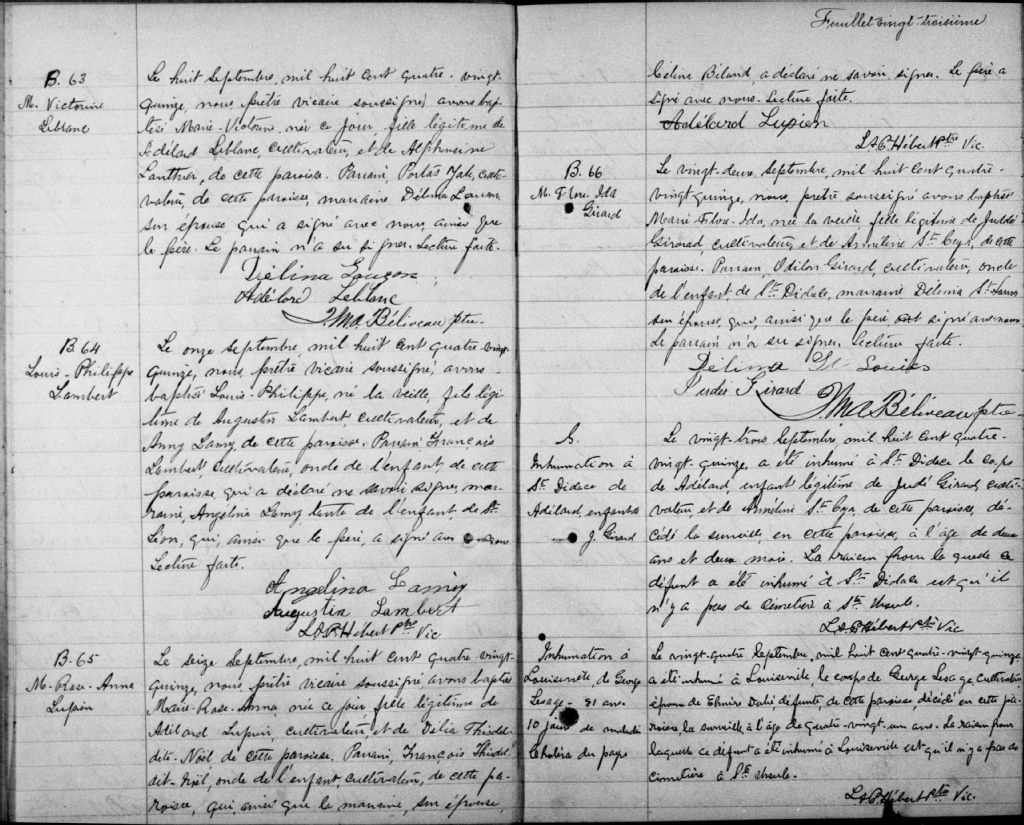 B. 63
M. Victorine
Leblanc
Le huit Septembre, mil huit cent quatre-vingt-
quinze, nous, prêtre vicaire soussigné, avons bap-
tisé Marie-Victorine, née ce jour, fille légitime de
Adélard Leblanc, cultivateur, et de Alphonsine
Lanthier, de cette paroisse. Parrain, culti-
vateur, de cette paroisse, marraine Délina
son épouse qui a signé avec nous, ainsi que
le père. Le parrain n'a su signer. Lecture faite.
Délina
Adélard Leblanc
J. M. A. Béliveau ptre
B 64
Louis-Philippe
Lambert
Le onze septembre, mil huit cent quatre-vingt-
quinze, nous, prêtre vicaire soussigné, avons
baptisé Louis-Philippe, né la veille, fils légi-
time de Augustin Lambert, cultivateur, et de
Anny Lamy, de cette paroisse. Parrain François
Lambert, cultivateur, oncle de l'enfant, de cette
paroisse, qui a déclaré ne savoir signer, mar-
raine, Angélina Lamy tante de l'enfant, de St.
Léon, qui, ainsi que le père, a signé avec nous
Lecture faite.
Angelina Lamy
Augustin Lambert
L A P. Hébert Ptre Vic
B. 65
M-Rose-Anna
Lupien
Le seize Septembre, mil huit cent quatre-vingt-
quinze, nous, prêtre vicaire soussigné avons baptisé
Marie-Rose-Anna, née ce jour fille légitime de
Adélard Lupien, cultivateur, et de Délia
dite-Noël de cette paroisse. Parrain, François
dit-Noël, oncle de l'enfant, cultivateur, de cette pa-
roisse, qui, ainsi que la marraine, son épouse,
Feuillet vingt-troisième
Célina Béland, a déclaré ne savoir signer. Le père a
signé avec nous. Lecture faite.
Adélard Lupien
L A P. Hébert Ptre Vic.
B. 66
M. Flore-Ida
Girard
Le vingt-deux, Septembre, mil huit cent quatre-
vingt quinze, nous, prêtre soussigné avons baptisé
Marie Flore-Ida, née la veille fille légitime de
Girard, cultivateur, et de St. Cyr, de cette
paroisse. Parrain, Odilon Girard, cultivateur, oncle
de l'enfant de St. Didace, marraine, St. Louis
son épouse, qui, ainsi que le père ont signé avec nous.
Le parrain n'a su signer. Lecture faite.
Délina St Louis
Girard
J. M. A. Béliveau ptre
S.
Inhumation à
St. Didace de
Adélard, enfant de
J. Girard
Le vingt-trois Septembre, mil huit cent quatre-
vingt-quinze, a été inhumé à St. Didace le corps
de Adélard, enfant légitime de Judé Girard, culti-
vateur, et de St. Cyr, de cette paroisse, dé-
cédé la surveille, en cette paroisse, à l'âge de deux
ans et deux mois. La raison pour laquelle ce
défunt a été inhumé à St. Didace est qu'il
n'y a pas de cimetière à Ste. Ursule.
L A P. Hébert Ptre Vic
Inhumation à
Louiseville, de George
Lesage - 81 ans
10 jours de maladie
Choléra du pays
Le vingt-quatre Septembre, mil huit cent quatre-vingt-quinze
a été inhumé à Louiseville le corps de George Lesage, cultivateur
époux de Elmire défunte, de cette paroisse décédé en cette pa-
roisse la surveille à l'âge de quatre-vingt-un ans. La raison pour
laquelle ce défunt a été inhumé à Louiseville est qu'il n'y a pas de
cimetière à Ste. Ursule.
L A P. Hébert Ptre Vic.